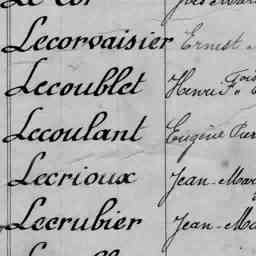 Lecorvaisier Ernest
Lecoublet Henri Fois
Lecoulant Eugène
Lecrioux Jean-Mar
Lecrubier Jean-Ma